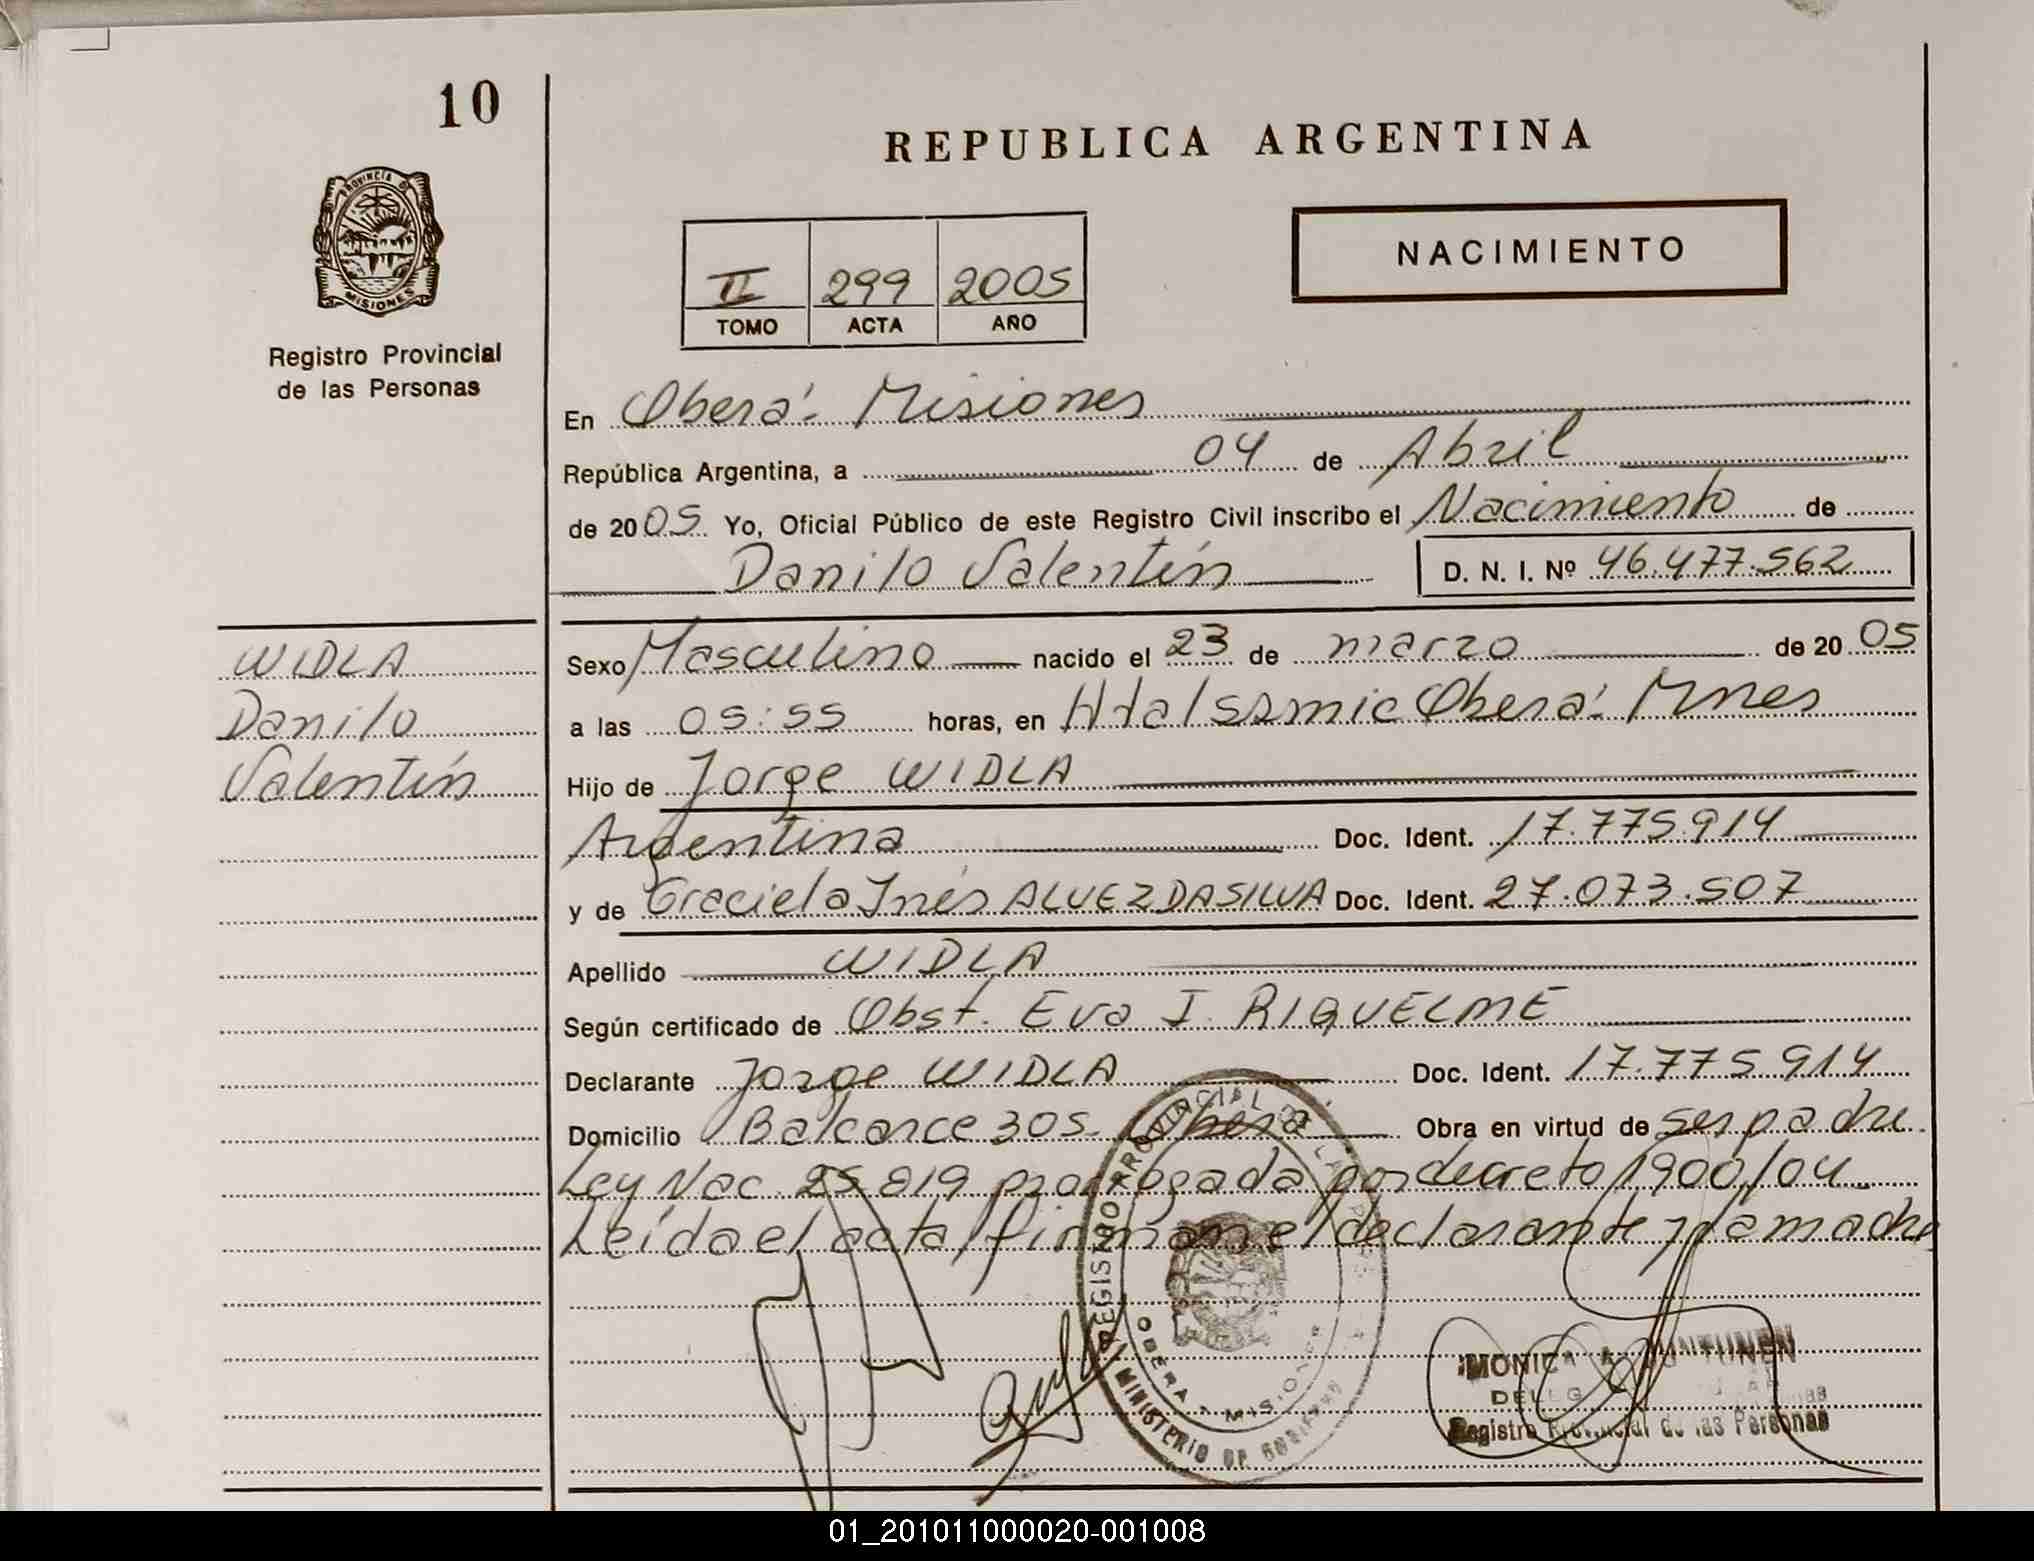 10
REPUBLICA ARGENTINA
PROVINCIA DE
MISIONES
Registro Provincial
de las Personas
NACIMIENTO
II 299 2005
TOMO ACTA AÑO
En Oberá - Misiones
República Argentina, a 04 de Abril
de 2005 Yo, Oficial Público de este Registro Civil inscribo el Nacimiento de
Danilo Valentín D. N. I. Nº 46.477.562
WIDLA
Danilo
Valentín
Sexo Masculino nacido el 23 de marzo de 2005
a las 05:55 horas, en Htal Samic Oberá - Mnes
Hijo de Jorge WIDLA
Argentina Doc. Ident. 17.775.914
y de Graciela Inés ALVEZ DA SILVA Doc. Ident. 27.073.507
Apellido WIDLA
Según certificado de Obst. Eva I. RIQUELME
Declarante Jorge WIDLA Doc. Ident. 17.775.914
Domicilio Balcarce 305 - Oberá Obra en virtud de ser padre.
Ley Nac. 25.819 prorrogada por decreto 1900/04 -
Leída el acta, firman el declarante y la madre
REGISTRO PROVINCIAL DE LAS
OBERA - MISIONES
MINISTERIO DE GOBIERNO
MONICA
Registro Provincial de las Personas
01_201011000020-001008